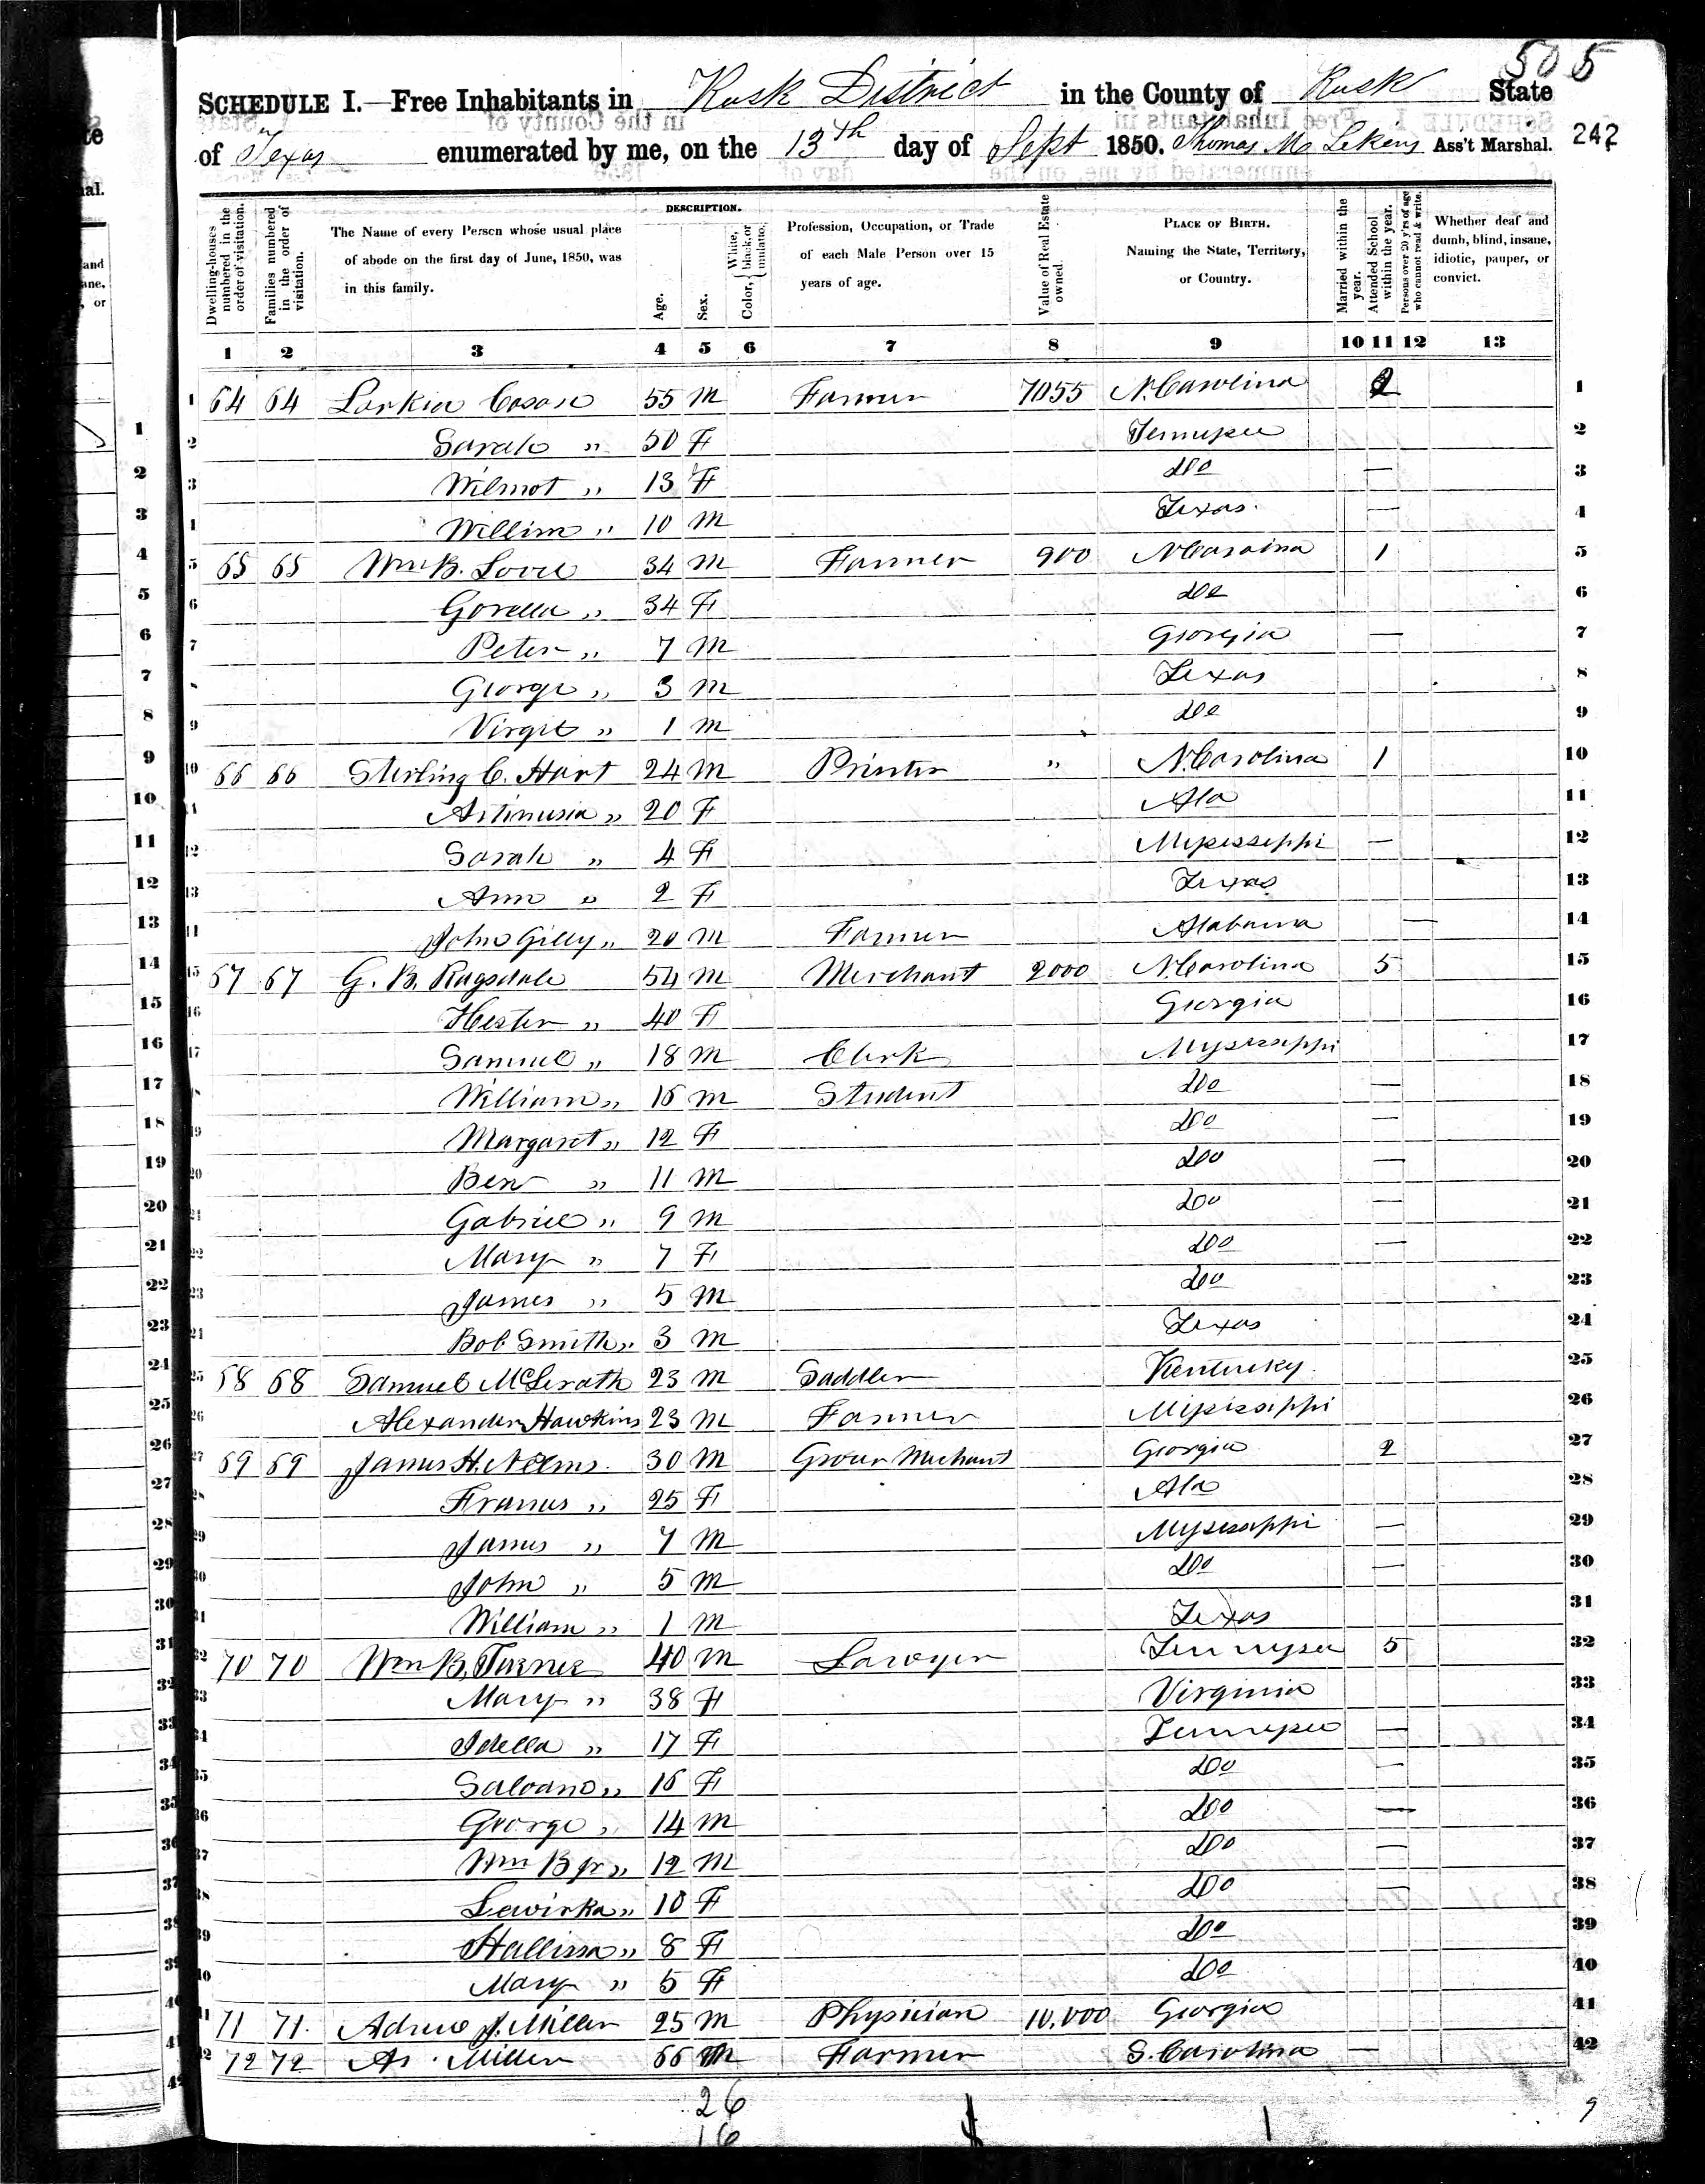 505
SCHEDULE I.—Free Inhabitants in Rusk District in the County of Rusk State
of Texas enumerated by me, on the 13th day of Sept 1850. Thomas M Likens Ass't Marshal. 242
Dwelling-houses numbered in the order of visitation.
Families numbered in the order of visitation.
The Name of every Person whose usual place of abode on the first day of June, 1850, was in this family.
DESCRIPTION.
Age.
Sex.
Color, { White, black, or mulatto.
Profession, Occupation, or Trade of each Male Person over 15 years of age.
Value of Real Estate owned.
PLACE OF BIRTH. Naming the State, Territory, or Country.
Married within the year.
Attended School within the year.
Persons over 20 y'rs of age who cannot read & write.
Whether deaf and dumb, blind, insane, idiotic, pauper, or convict.
1 2 3 4 5 6 7 8 9 10 11 12 13
1 64 64 Larkin 55 M Farmer 7055 N. Carolina 2 1
2 Sarah " 50 F Tennessee 2
3 Wilmot " 13 F do — 3
4 William " 10 M Texas — 4
5 65 65 Wm B. Love 34 M Farmer 900 N Caroina 1 5
6 Gorella " 34 F do 6
7 Peter " 7 M Georgia — 7
8 George " 3 M Texas 8
9 Virgil " 1 M do 9
10 66 66 Sterling C. Hart 24 M Printer " N. Carolina 1 10
11 Artimisia " 20 F Ala 11
12 Sarah " 4 F Missississippi — 12
13 Ann " 2 F Texas 13
14 John Gilly " 20 M Farmer Alabama — 14
15 67 67 G. B. Ragsdale 54 M Merchant 2000 N. Carolina 5 15
16 Hester " 40 F Georgia 16
17 Samuel " 18 M Clerk Mississippi 17
18 William " 16 M Student do — 18
19 Margaret " 12 F do — 19
20 Ben " 11 M do — 20
21 Gabriel " 9 M do — 21
22 Mary " 7 F do — 22
23 James " 5 M do 23
24 Bob Smith " 3 M Texas 24
25 68 68 Samuel McLerath 23 M Saddler Kentucky 25
26 Alexander Hawkins 23 M Farmer Mississippi 26
27 69 69 James H. Nelms 30 M Grocer Merchant Georgia 2 27
28 Frances " 25 F Ala 28
29 James " 7 M Mississippi — 29
30 John " 5 M do — 30
31 William " 1 M Texas 31
32 70 70 Wm B. Turner 40 M Lawyer Tennessee 5 32
33 Mary " 38 F Virginia 33
34 Idella " 17 F Tennessee — 34
35 " 16 F do — 35
36 George " 14 M do — 36
37 Wm B Jr " 12 M do — 37
38 " 10 F do — 38
39 " 8 F do 39
40 Mary " 5 F do 40
41 71 71 Andrew J. Miller 25 M Physician 10,000 Georgia 41
42 72 72 Miller 66 M Farmer S. Carolina — 42
26
16
1
9